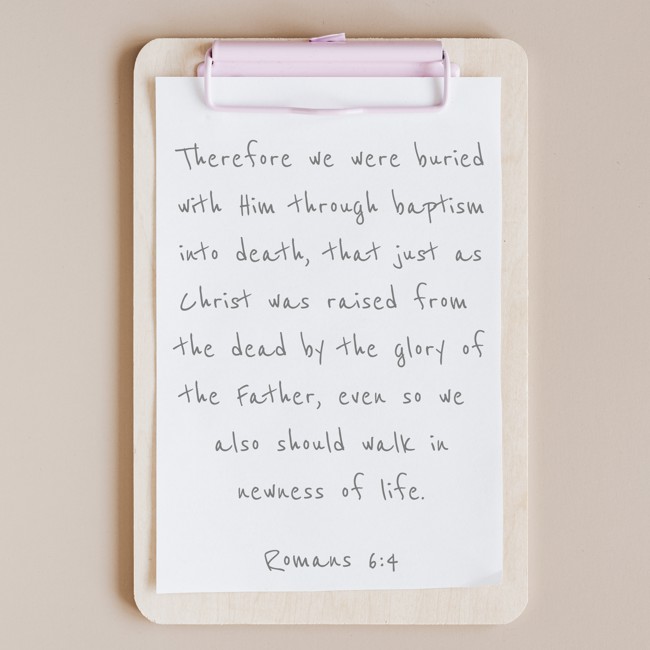 Therefore we were buried
with Him through baptism
into death, that just as
Christ was raised from
the dead by the glory of
the Father, even so we
also should walk in
newness of life.
Romans 6:4